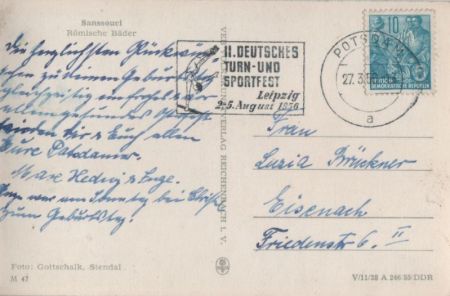 Sanssouci
Römische Bäder
Die herzlichsten Glückwün-
schen zu deinem Geburtstag
gleichzeitig
senden dir & Euch allen
Eure Potsdamer.
Max Hedwig & Inge.
Inge war am Sonntag bei
zum Geburtstag.
Foto: Gottschalk, Stendal
M 47
VERLAG REICHENBACH I. V.
II. DEUTSCHES
TURN- UND
SPORTFEST
Leipzig
2-5. August 1956
POTSDAM
27.3.
a
10
DEUTSCHE DEMOKRATISCHE REPUBLIK
Frau
Luzia Brückner
Eisenach
Friedenstr 6. II
V/11/28 A 246/55/DDR